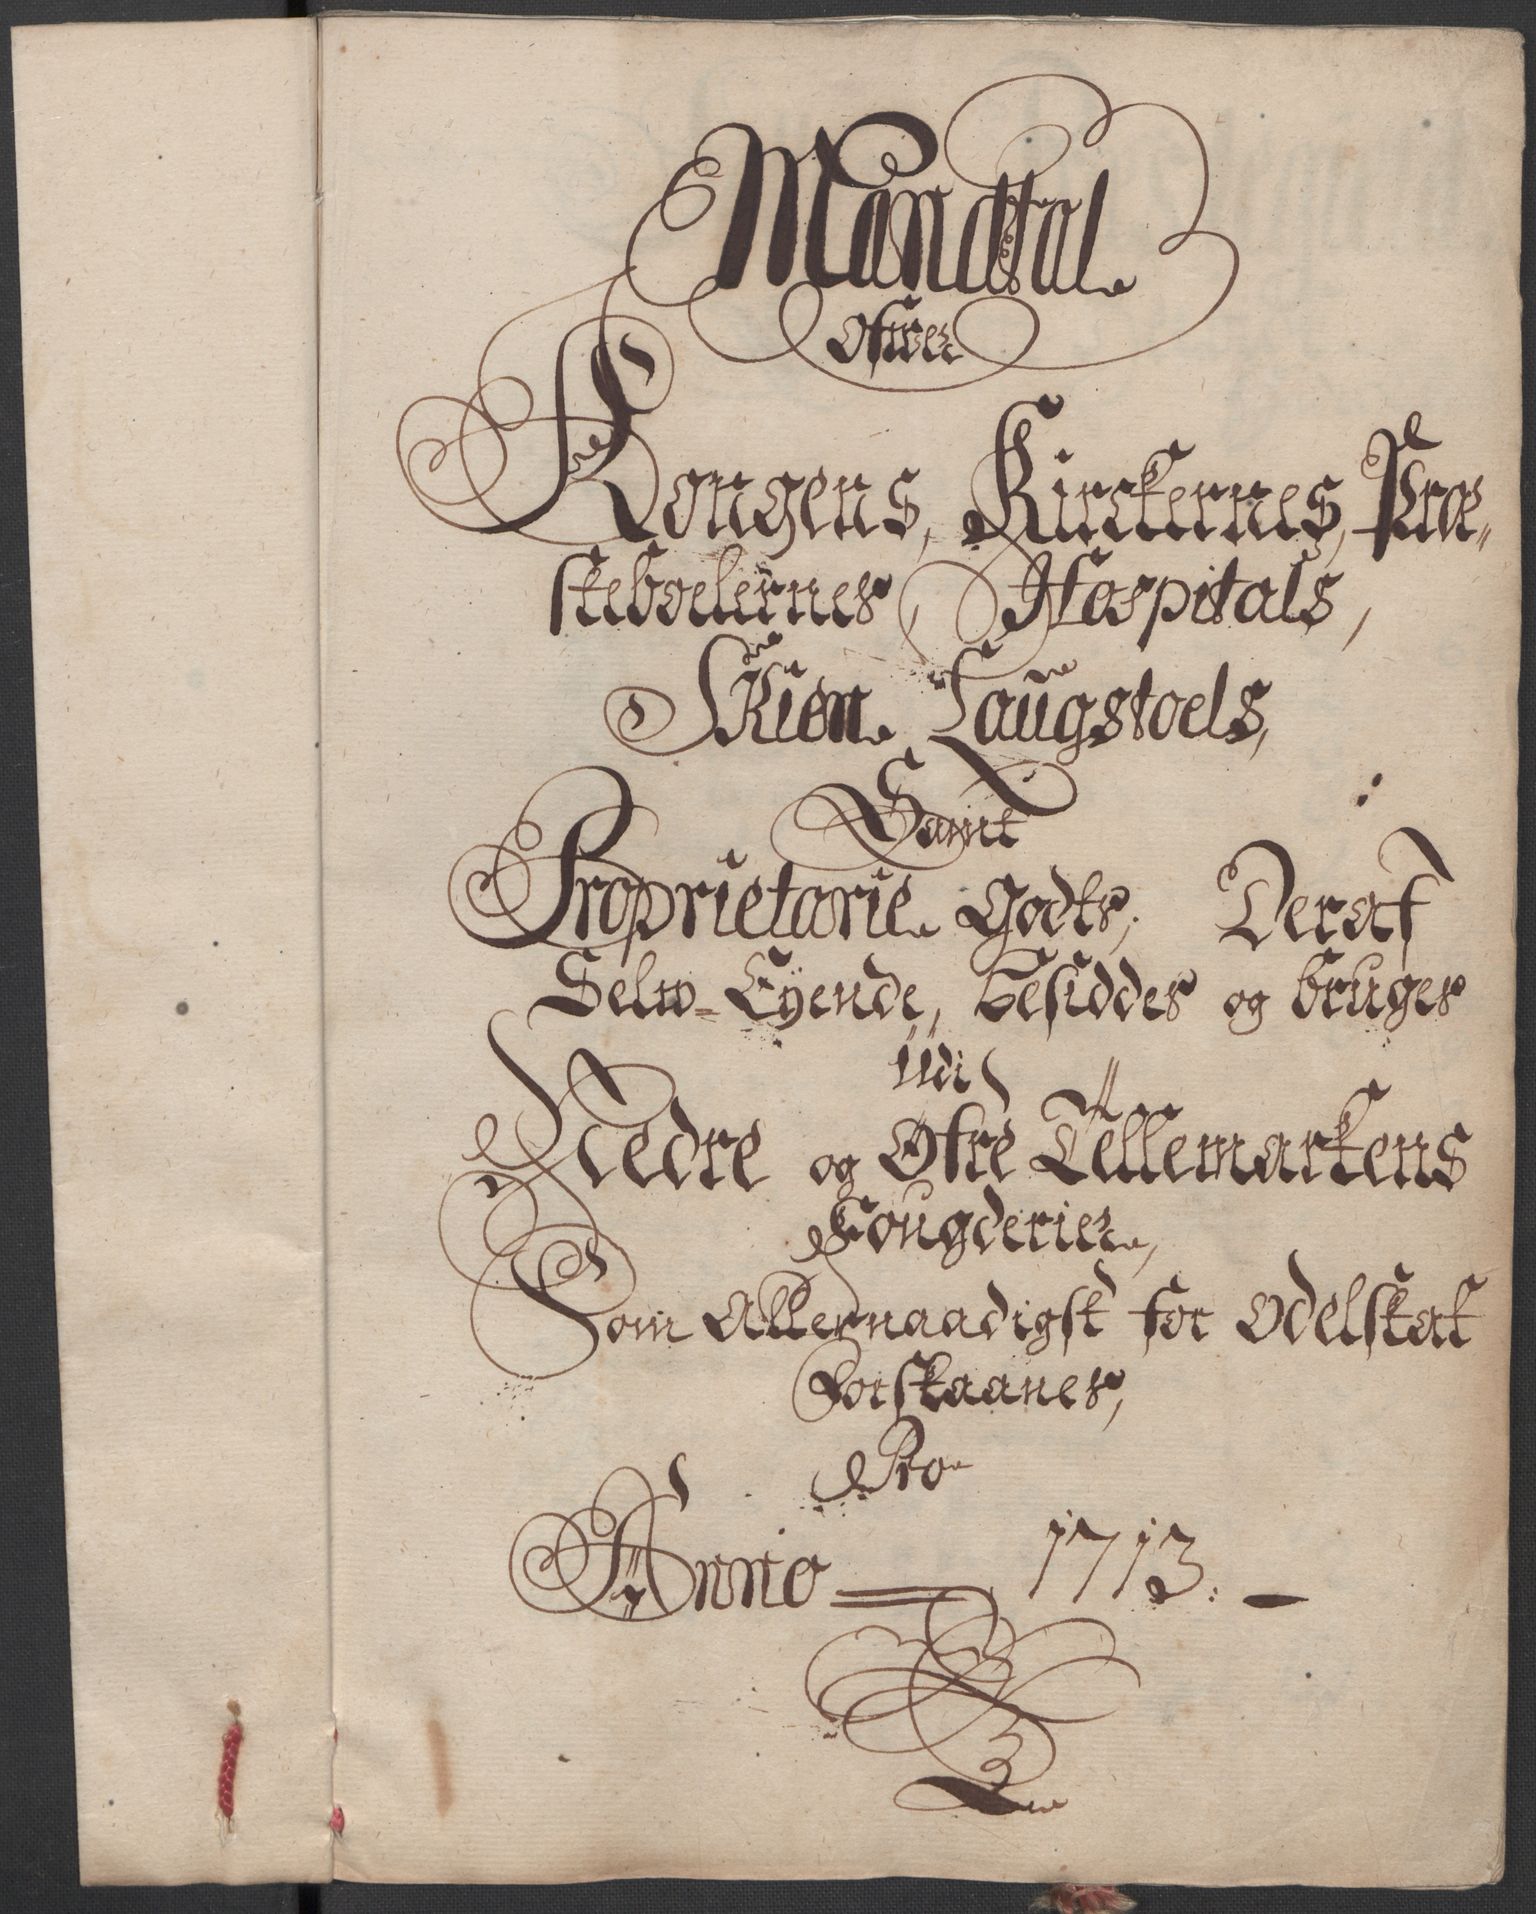 Mandtal
Ofver
Kongens, Kirckernes, Præ„
steboelernes, Hospitals,
Skien Laugstoels,
Samt
Proprietarie Godts, Deraf
Selw-Eyende, besiddes og bruges
Udi
Nedre og Øfre Tellemarkens
Fougderier,
Som Allernaadigst for Odelskat
Forskaanes,
Pro
Anno 1713: